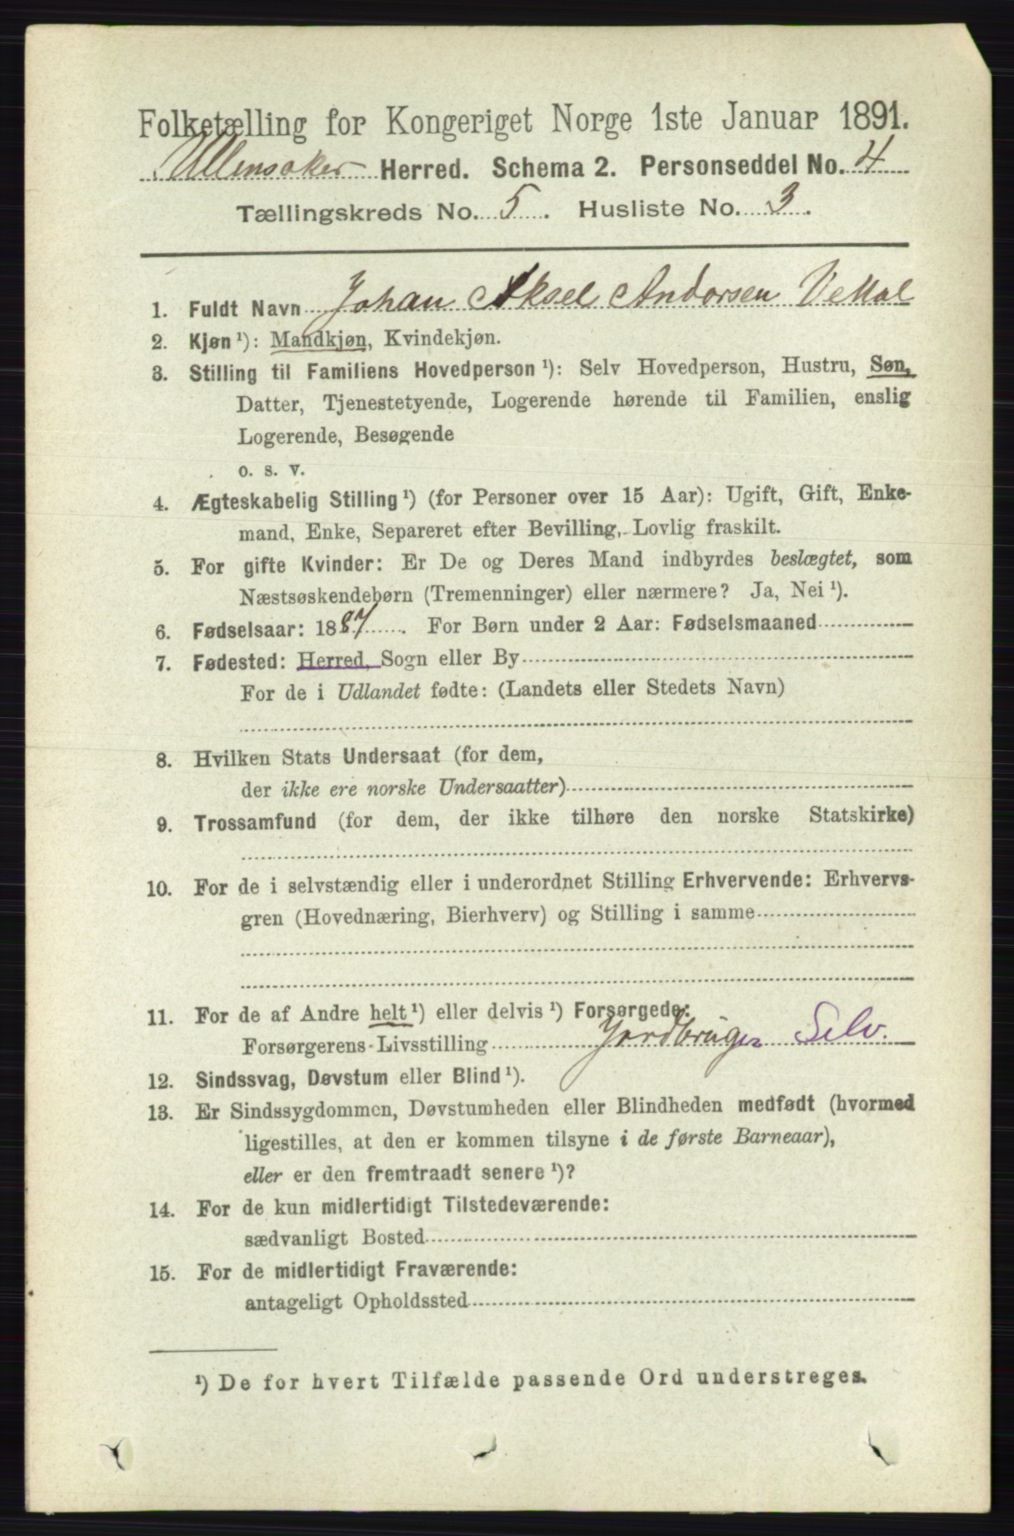 Folketælling for Kongeriget Norge 1ste Januar 1891.
Ullensaker Herred. Schema 2. Personseddel No. 4
Tællingskreds No. 5. Husliste No. 3.
1. Fuldt Navn Johan Aksel Andorsen
2. Kjøn ¹): Mandkjøn, Kvindekjøn.
3. Stilling til Familiens Hovedperson ¹): Selv Hovedperson, Hustru, Søn,
Datter, Tjenestetyende, Logerende hørende til Familien, enslig
Logerende, Besøgende
o. s. v.
4. Ægteskabelig Stilling ¹) (for Personer over 15 Aar): Ugift, Gift, Enke-
mand, Enke, Separeret efter Bevilling, Lovlig fraskilt.
5. For gifte Kvinder: Er De og Deres Mand indbyrdes beslægtet, som
Næstsøskendebørn (Tremenninger) eller nærmere? Ja, Nei ¹).
6. Fødselsaar: 1887. For Børn under 2 Aar: Fødselsmaaned
7. Fødested: Herred, Sogn eller By
For de i Udlandet fødte: (Landets eller Stedets Navn)
8. Hvilken Stats Undersaat (for dem,
der ikke ere norske Undersaatter)
9. Trossamfund (for dem, der ikke tilhøre den norske Statskirke)
10. For de i selvstændig eller i underordnet Stilling Erhvervende: Erhvervs-
gren (Hovednæring, Bierhverv) og Stilling i samme
11. For de af Andre helt ¹) eller delvis ¹) Forsørgede:
Forsørgerens Livsstilling Jordbruger Selv.
12. Sindssvag, Døvstum eller Blind ¹).
13. Er Sindssygdommen, Døvstumheden eller Blindheden medfødt (hvormed
ligestilles, at den er kommen tilsyne i de første Barneaar),
eller er den fremtraadt senere ¹)?
14. For de kun midlertidigt Tilstedeværende:
sædvanligt Bosted
15. For de midlertidigt Fraværende:
antageligt Opholdssted
¹) De for hvert Tilfælde passende Ord understreges.